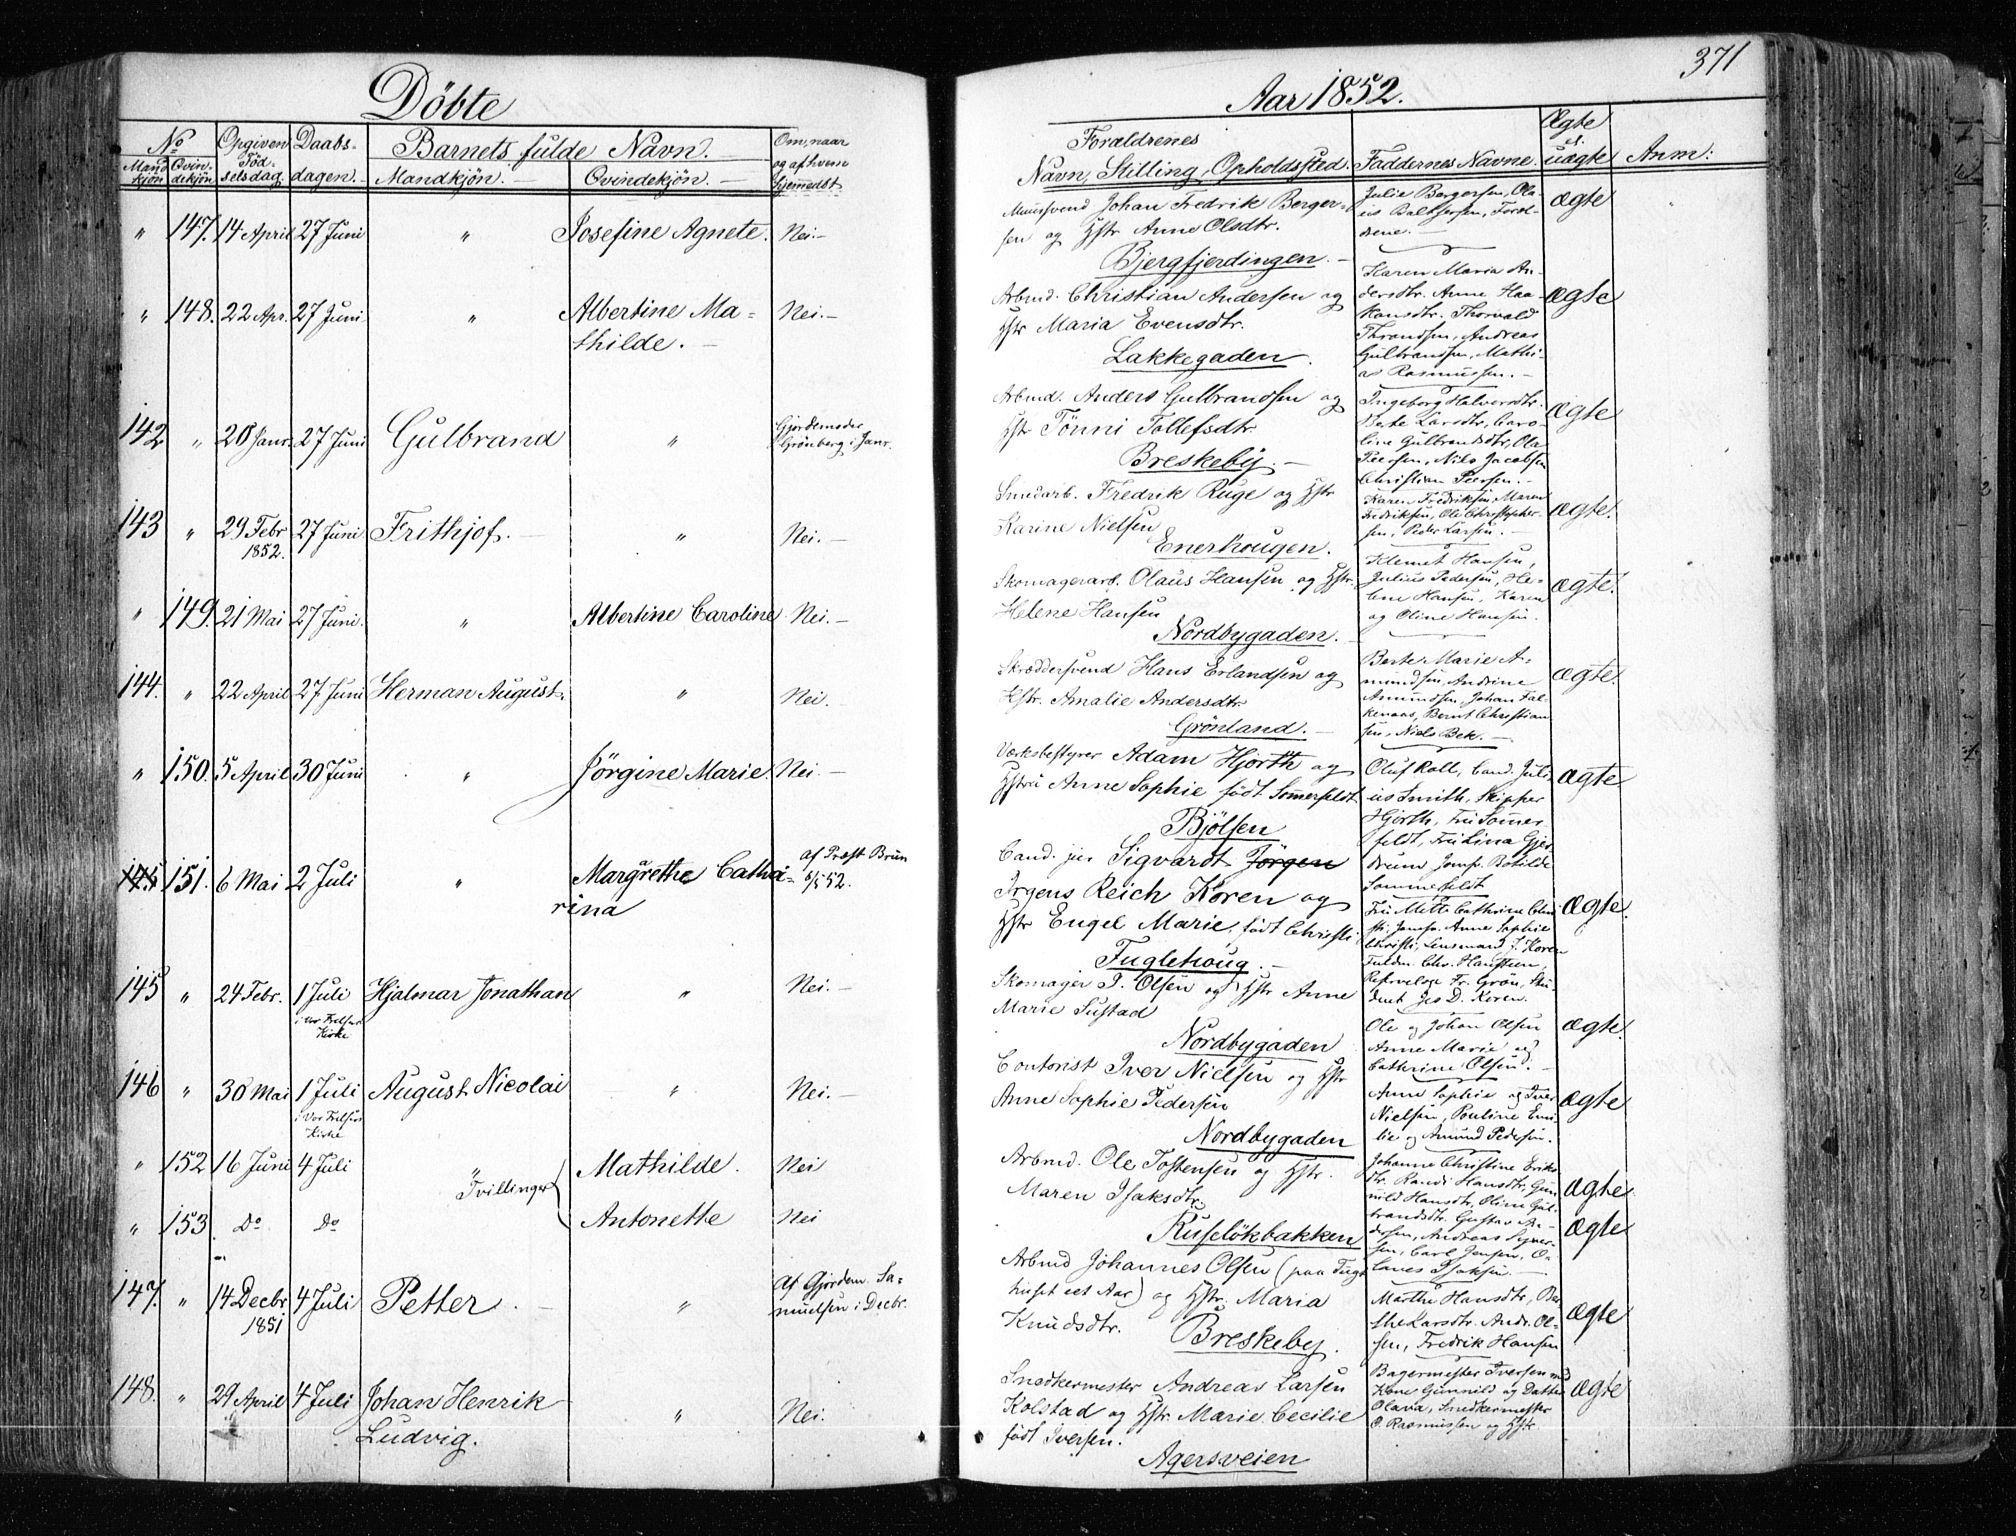 371
Döbte
Aar 1852.
No
Opgiven
Daabs-
Barnets fulde Navn.
Om, naar
Forældrenes
Ægte
Mand
Qvin-
Föd-
og af hvem
el.
kjön
dekjön
selsdag
dagen.
Mandkjön.
Qvindekjön.
hjemmedöbt
Navn, Stilling, Opholdssted.
Faddernes Navne.
uægte
Anm:
" 147. 14 April 27 Juni " Josefine Agnete. Nei.-
Johan Fredrik Berger-
sen og Hstr Anne Olsdtr.
Bjergfjerdingen.
Julie Bergersen, Ola-
us Balthersen, Foræl-
drene.
ægte
" 148. 22 Apr. 27 Juni " Albertine Ma- Nei.-
thilde.
Arbmd. Christian Andersen og
Hstr Maria Evensdtr.
Lakkegaden.
Karen Maria An-
dersdtr. Anne Haa-
konsdtr. Thorvald
Throndsen, Andreas
Gulbrandsen, Mathi-
as Rasmussen.
ægte
142 " 20 Janr. 27 Juni Gulbrand " Gjordemoder
Grönberg i Janr.
Arbmd. Anders Gulbrandsen og
Hstr Tönni Tollefsdtr.
Breskeby.
Ingeborg Halvorsdtr.
Berte Larsdtr, Caro-
line Gulbrandsdtr, Ola
Peersen, Nils Jacobsen
Christian Peersen.
Ægte
143 " 29 Febr 27 Juni Frithjof. " Nei.-
1852.
Smedarb. Fredrik Ruge og Hstr
Karine Nielsen
Enerhougen.
Karen Fredriksen, Maren
Fredriksen, Ole Christopher-
sen, Peder Larsen.
ægte.
" 149. 21 Mai 27 Juni. " Albertine Caroline Nei.-
Skomagerarb. Olaus Hansen og Hstr.
Helene Hansen
Nordbygaden.
Klemet Hansen,
Julius Pedersen, He-
lene Hansen, Karen
og Oline Hansen.
ægte.
144. " 22 April 27 Juni Herman August. " Nei.
Skræddersvend Hans Erlandsen og
Hstr. Amalie Andersdtr.
Grönland.
Berte Marie A-
mundsen, Andrine
Amundsen, Johan Fal-
kenaas, Bernt Christian
sen, Niels Bek.
ægte.
" 150. 5 April 30 Juni " Jörgine Marie. Nei.-
Værksbestyrer Adam Hjorth og
Hstru Anne Sophie födt Sommerfeldt
Bjölsen
Oluf Roll, Cand. Juli-
us Smith, Skipper
Hjorth, Fru Sommer
feldt, Fru Lina Gjer
drum, Jomfr. Botilde
Sommerfeldt
ægte
145 151. 6 Mai 2 Juli " Margrethe Catha- af Præst Brun
rina
6/5 52.
Cand. jur Sigvardt Jörgen
Irgens Reich Koren og
Hstr Engel Marie, födt Christi
Fuglehoug.
Fru Mette Cathrine Chri
sti, Jomfr. Anne Sophie
Christi, Lensmand J. Koren
Fuldm. Chr. Hansteen,
Fr. Grön, Stu
dent Jes D. Koren.
Ægte.
145 " 24 Febr. 1 Juli Hjalmar Jonathan " Nei.-
i Vor Frelsers
Kirke
Skomager P. Olsen og Hstr Anne
Marie Sustad
Nordbygaden
Ole og Johan Olsen
Anne Marie og
Cathrine Olsen.
ægte.
146 " 30 Mai 1 Juli August Nicolai " Nei.-
i Vor Frelsers
Kirke
Contorist Iver Nielsen og Hstr
Anne Sophie Pedersen
Nordbygaden
Anne Sophie og Iver
Nielsen, Pauline Emi-
lie og Amund Pedersen.
ægte
" 152 16 Juni 4 Juli " Mathilde. Nei
Tvillinger
" 153 Do Do Antonette Nei
Arbmd. Ole Tostensen og Hstr.
Maren Isaksdtr.
Ruselökbakken
Johanne Christine Eriks
dtr. Randi Hansdtr, Gun
nild Hansdtr, Oline Gul-
brandsdtr. Gustav An-
dersen, Andreas Syver-
sen, Carl Jensen, O-
lanes Isaksen.
ægte
ægte
147. " 14 Decbr 4 Juli Petter. " Af Gjordem. Sa-
1851
muelsen i Decbr.
Arbmd Johannes Olsen (paa Tugt
huset eet Aar) og Hstr. Maria
Knudsdtr.
Breskeby.
Marthe Hansdtr, Ber
the Larsdtr. Andr. Ol-
sen, Fredrik Hansen
ægte
148. " 29 April 4 Juli Johan Henrik " Nei.
Ludvig.
Snedkermester Andreas Larsen
Kolstad og Hstr. Marie Cecilie
födt Iversen.
Agersveien
Bagermester Iversen med
Kone Gunnild og Datter
Olava, Snedkermester
O. Rasmussen og Hstr
ægte